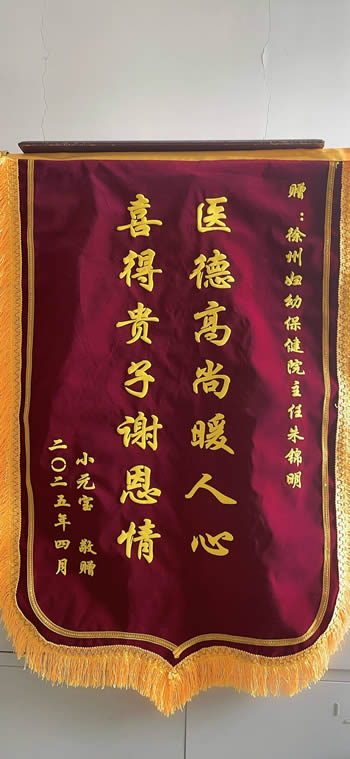 赠：徐州妇幼保健院主任朱锦明
医德高尚暖人心
喜得贵子谢恩情
小元宝 敬赠
二〇二五年四月